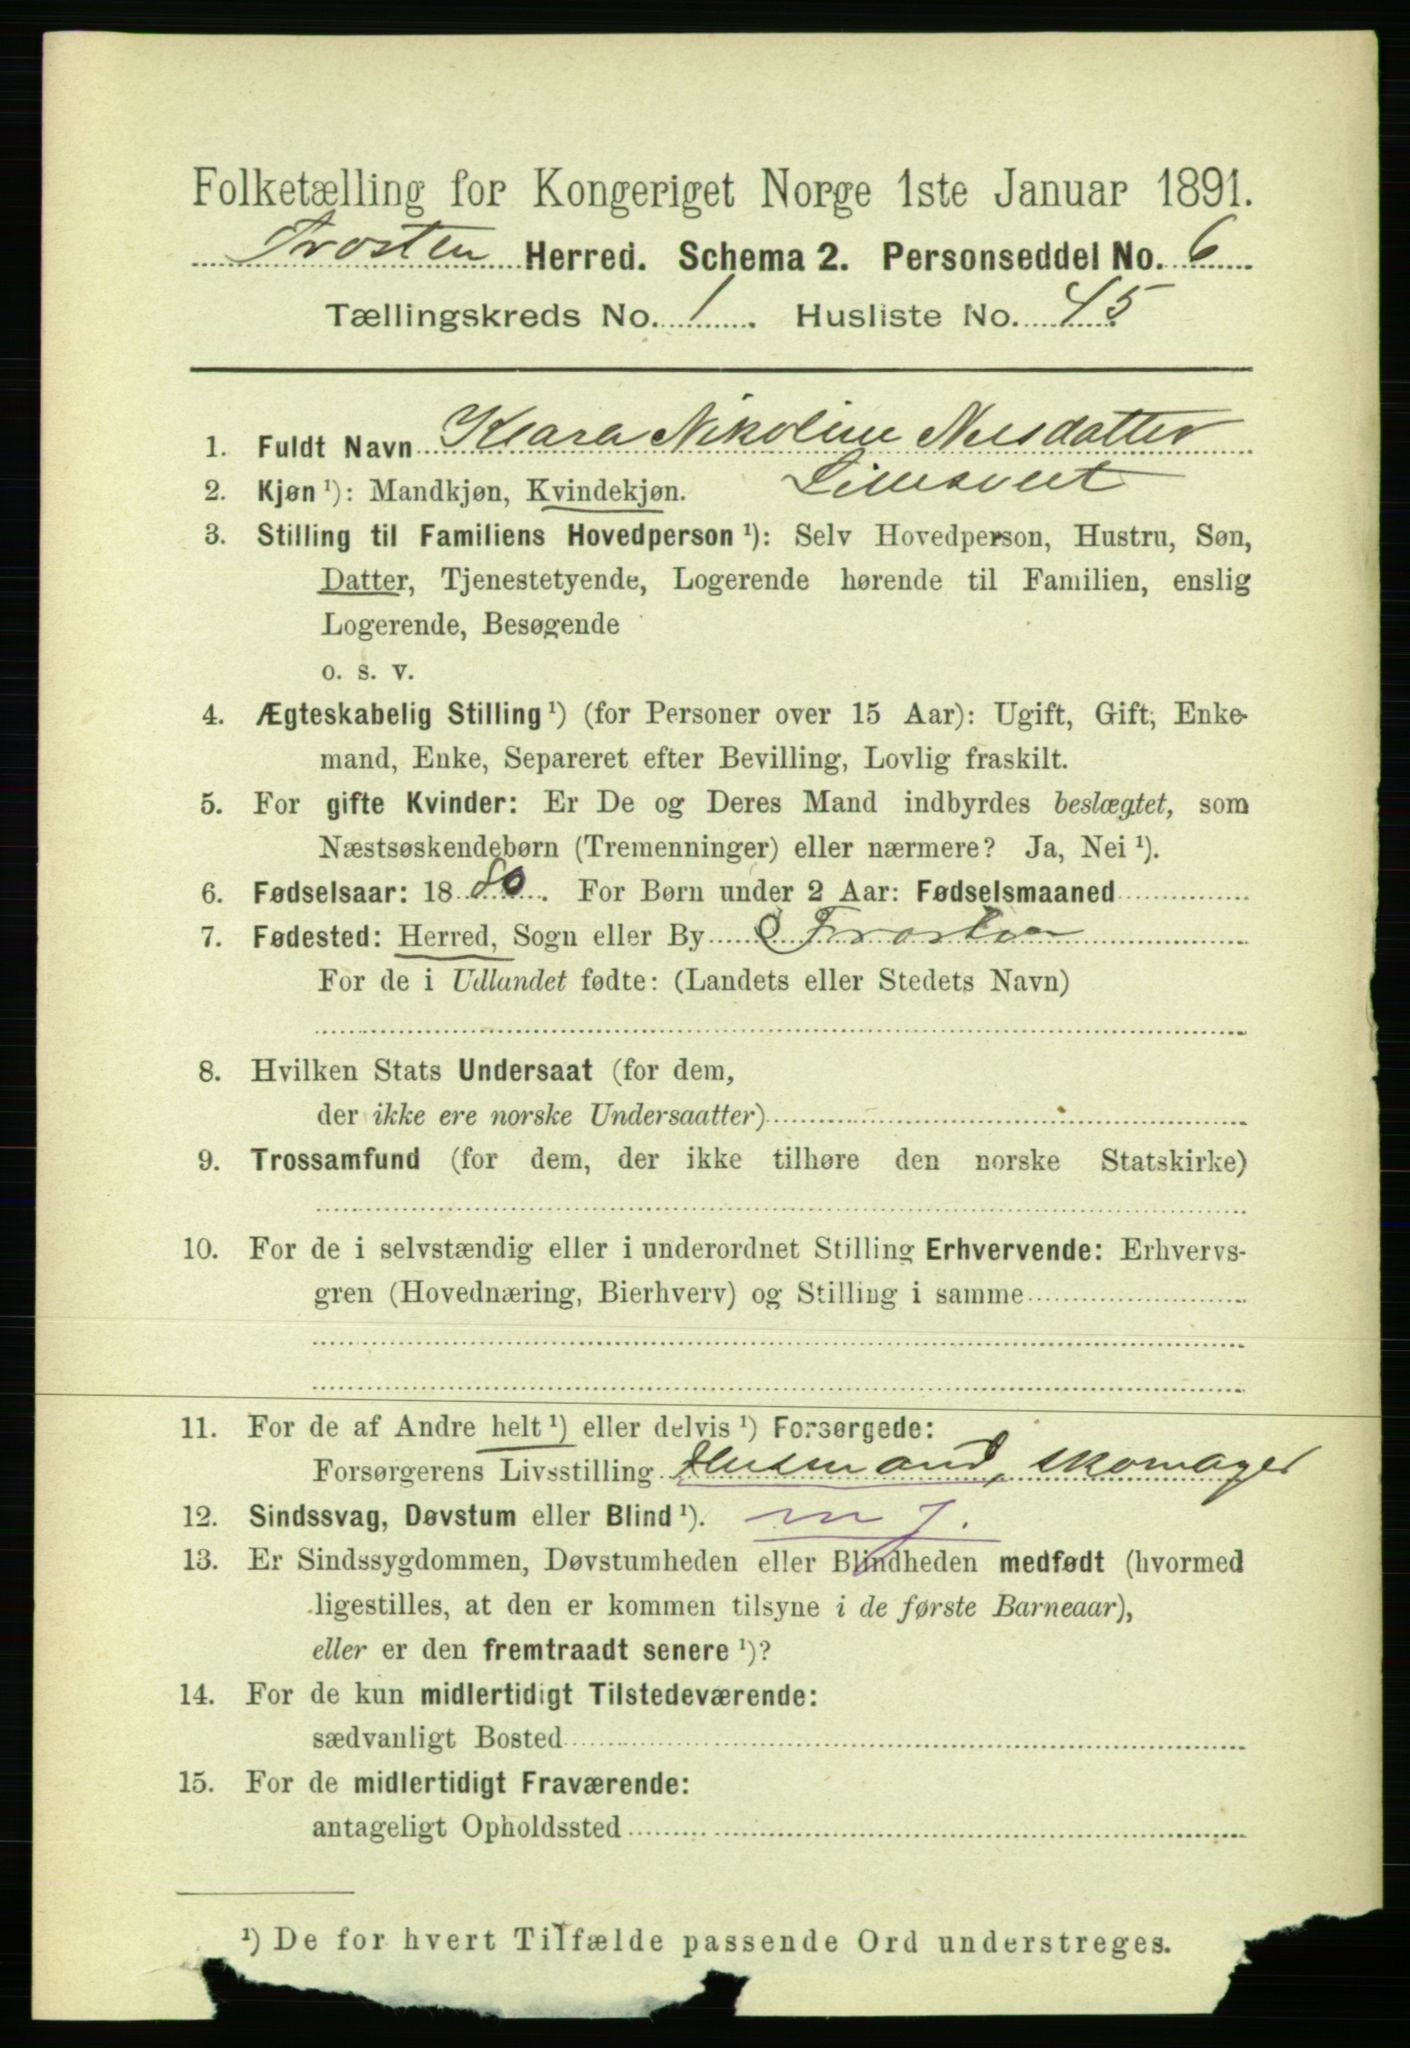 Folketælling for Kongeriget Norge 1ste Januar 1891.
Frosten Herred. Schema 2. Personseddel No. 6
Tællingskreds No. 1. Husliste No. 45
1. Fuldt Navn Klara Nikoline Nilsdatter
2. Kjøn ¹): Mandkjøn, Kvindekjøn.
3. Stilling til Familiens Hovedperson ¹): Selv Hovedperson, Hustru, Søn,
Datter, Tjenestetyende, Logerende hørende til Familien, enslig
Logerende, Besøgende
o. s. v.
4. Ægteskabelig Stilling ¹) (for Personer over 15 Aar): Ugift, Gift, Enke-
mand, Enke, Separeret efter Bevilling, Lovlig fraskilt.
5. For gifte Kvinder: Er De og Deres Mand indbyrdes beslægtet, som
Næstsøskendebørn (Tremenninger) eller nærmere? Ja, Nei ¹).
6. Fødselsaar: 1880. For Børn under 2 Aar: Fødselsmaaned
7. Fødested: Herred, Sogn eller By Frosten
For de i Udlandet fødte: (Landets eller Stedets Navn)
8. Hvilken Stats Undersaat (for dem,
der ikke ere norske Undersaatter)
9. Trossamfund (for dem, der ikke tilhøre den norske Statskirke)
10. For de i selvstændig eller i underordnet Stilling Erhvervende: Erhvervs-
gren (Hovednæring, Bierhverv) og Stilling i samme
11. For de af Andre helt ¹) eller delvis ¹) Forsørgede:
Forsørgerens Livsstilling Husmand, skomager
12. Sindssvag, Døvstum eller Blind ¹). m j.
13. Er Sindssygdommen, Døvstumheden eller Blindheden medfødt (hvormed
ligestilles, at den er kommen tilsyne i de første Barneaar),
eller er den fremtraadt senere ¹)?
14. For de kun midlertidigt Tilstedeværende:
sædvanligt Bosted
15. For de midlertidigt Fraværende:
antageligt Opholdssted
¹) De for hvert Tilfælde passende Ord understreges.